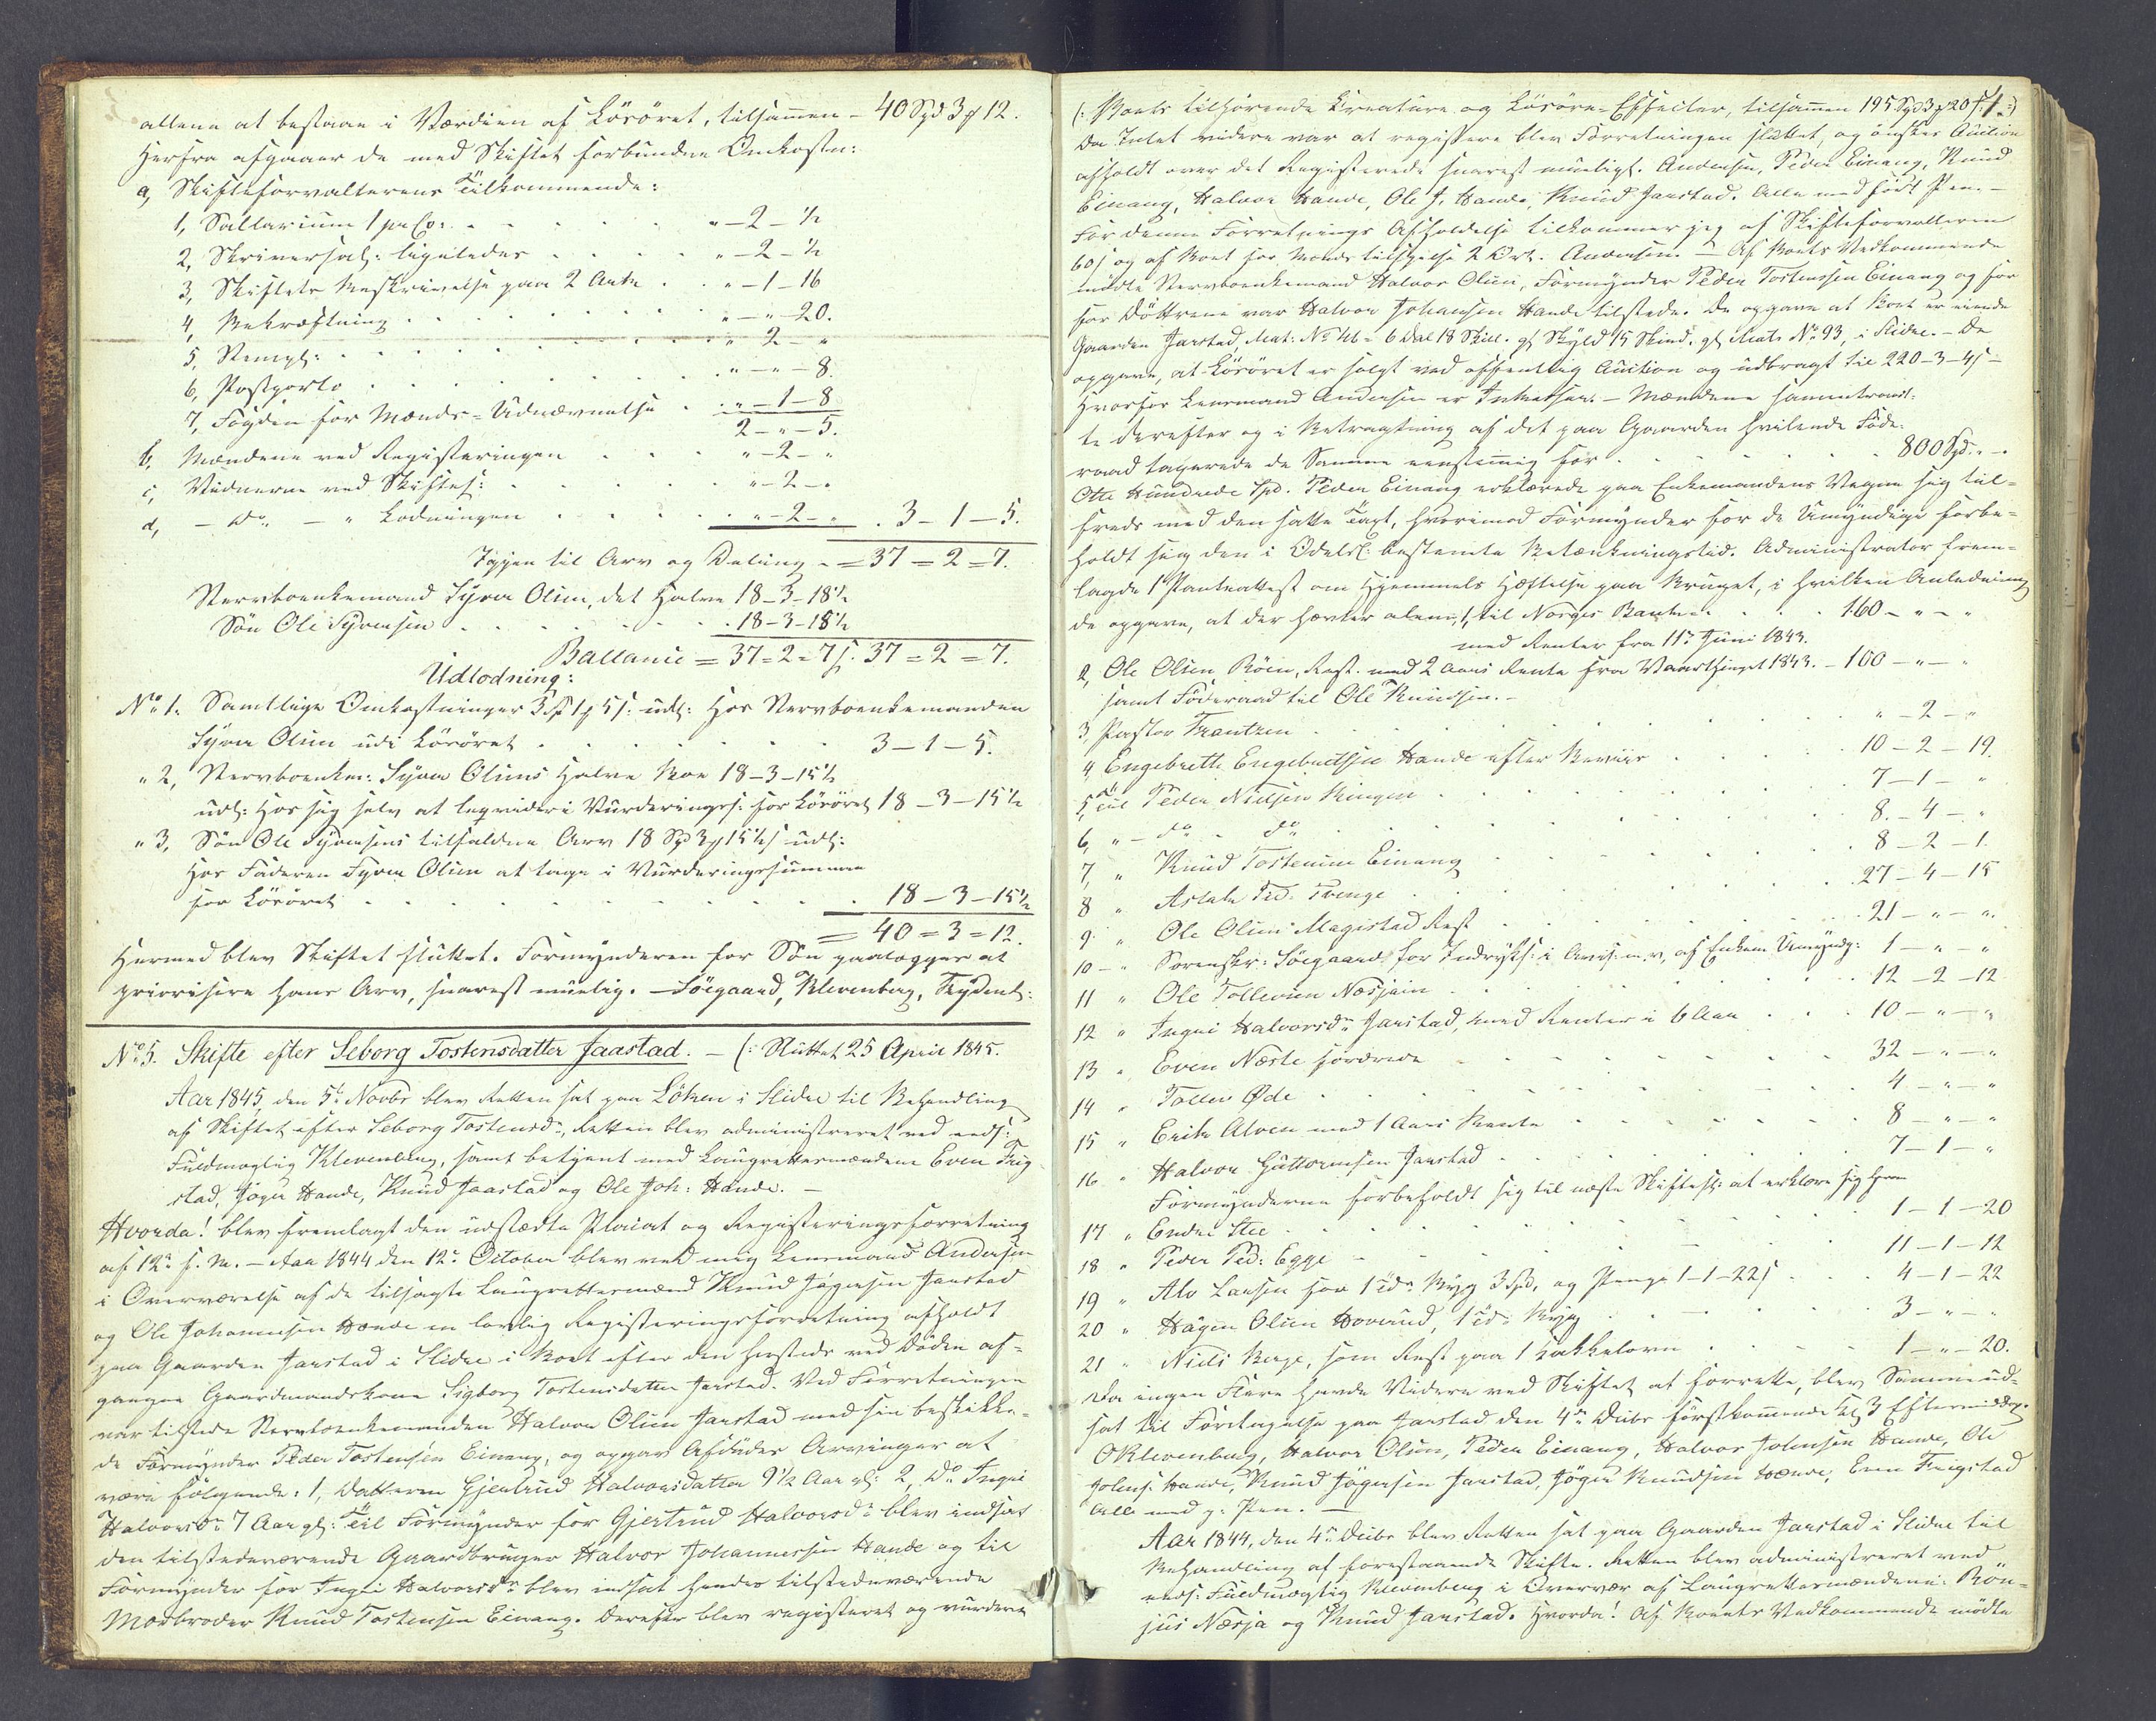 allene at bestaae i Værdien af Løsøret, tilsammen - 40 Spd 3 ƒ 12.
Herfra afgaaer de med Skiftet forbundne Omkostn:
a, Skifteforvalterens Tilkommende:
1, Sallarium 1 pr Co: . . . . . " - 2 - ½
2, Skriversal: ligeledes . . . . " - 2 - ½
3, Skiftets Beskrivelse paa 2 Arke . . " - 1 - 16
4, Bekræftning . . . . . . " - " - 20.
5, Stempl: . . . . . . . " 2 - "
6, Postporto . . . . . . " - " - 8.
7, Fogden for Mænds-Udnævnelse . . " - 1 - 8
2 - " - 5.
b, Mændene ved Registeringen . . . " - 2 - "
c, Vidnerne ved Skiftes: . . . . " - 2 - "
d, - Do - " Lodningen . . . . " - 2 - " . 3 - 1 - 5.
Igjen til Arv og Deling - = 37 = 2 = 7.
Stervboenkemand Syver Olsen, det Halve 18 - 3 - 15½
Søn Ole Syversen . . . . . . 18 - 3 - 15½
Ballance = 37 = 2 = 7 ſ. 37 = 2 = 7.
Udlodning:
No 1. Samtlige Omkostninger 3 Spd 1 ƒ 5 ſ: udl: Hos Stervboenkemanden
Syver Olsen udi Løsøret . . . . . . 3 - 1 - 5.
" 2, Stervboenkem: Syver Olsens Halve Boe 18 - 3 - 15½
udl: Hos sig selv at leqvidere i Vurderingss: for Løsøret 18 - 3 - 15½
" 3, Søn Ole Syversens tilfaldne Arv 18 Spd 3 ƒ 15½ ſ udl:
Hos Faderen Syver Olsen at tage i Vurderingssummen
for Løsøret . . . . . . . . . 18 - 3 - 15½
= 40 = 3 = 12.
Hermed blev Skiftet sluttet. Formynderen for Søn paalægges at
priorisere hans Arv, snarest muelig. - Söegaard, Klevenberg,
No 5. Skifte efter Seborg Tostensdatter Jaastad. - (: Sluttet 25 April 1845.
Aar 1845, den 5te Novbr blev Retten sat paa Löken i Slidre til Behandling
af Skiftet efter Seborg Tostensdr, Retten blev administreret ved eeds:
Fuldmægtig Klevenberg, samt betjent med Laugrettesmændene Even Frig-
stad, Jöger Hande, Knud Jaastad og Ole Joh: Hande. -
Hvorda! blev fremlagt den udstædte Placat og Registeringsforretning
af 12te f. M. - Aar 1844 den 12te October blev ved mig Lensmand Andersen
i Overværelse af de tilsagte Laugrettesmænd Knud Jögersen Jarstad
og Ole Johannesen Hande en lovlig Registeringsforretning afholdt
paa Gaarden Jarstad i Slidre i Boet efter den hersteds ved Døden af-
gangne Gaardmandskone Sigborg Tostensdatter Jarstad. Ved Forretningen
var tilstede Stervboenkemanden Halvor Olsen Jarstad med sin beskikke-
de Formynder Peder Tostensen Einang, og opgav Afdødes Arvinger at
være følgende: 1, Datteren Gjertrud Halvorsdatter 9½ Aar gl: 2, Do Ingri
Halvorsdr 7 Aar gl: Til Formynder for Gjertrud Halvorsdr blev indsat
den tilstedeværende Gaardbruger Halvor Johannessen Hande og til
Formynder for Ingri Halvorsdr blev indsat hendes tilstedeværende
Morbroder Knud Tostensen Einang. Derefter blev registeret og vurderet
(: Boets tilhørende Kreature og Løsøre-Effecter, tilsamen 195 Spd 3 ƒ 20 ſ. :)
Da Intet videre var at registere blev Forretningen sluttet, og ønskes Auction
afholdt over det Registerede snarest mueligt. Andersen, Peder Einang, Knud
Einang, Halvor Hande, Ole J. Hande, Knud Jarstad. Alle med ført Pen. -
For denne Forretnings Afholdelse tilkommer jeg af Skifteforvalteren
60 ſ og af Boet for Mænds tilsigelse 2 Ort. Andersen. - Af Boets Vedkommende
mødte Stervboenkemand Halvor Olsen, Formynder Peder Tostenssen Einang og for
for Døttrene var Halvor Johansen Hande tilstede. De opgave at Boet er eiende
Gaarden Jarstad, Mat: No 46 - 6 Dal 18 Skill. gl Skyld 15 Skind. gl Mat. No 93, i Slidre. - De
opgave, at Løsøret er solgt ved offentlig Auction og udbragt til 220 - 3 - 4 ſ -
Hvorfor Lensmand Andersen er Incassator. - Mændene sammentraad-
te derefter og i Betragtning af det paa Gaarden hvilende Føde-
raad taxerede de Samme eenstemig for . . . . . . 800 Spd. " - .
Otte Hundrede Spd. Peder Einang erklærede paa Enkemandens Vegne sig til-
freds med den satte Taxt, hvorimod Formynder for de Umyndige forbe-
holdt sig den i Odelsl: bestemte Betænkningstid. Administrator frem-
lagde 1 Panteattest om Hjemmels Hæftelse paa Bruget, i hvilken Anledning
de opgave, at der hæfter alene, 1, til Norges Banke . . . . 160 - " - "
med Renter fra 11te Juni 1843.
2, Ole Olsen Röen, Rest. med 2 Aars Rente fra Vaarthinget 1843. - 100 - " - "
samt Føderaad til Ole Knudsen. -
3, Pastor Frantzen . . . . . . . . . " - 2 - "
4, Engebrette Engebretsen Hande efter Beviis . . . . 10 - 2 - 19.
5, til Peder Nielsen Ringen . . . . . . . 7 - 1 - "
6, " - do - do . . . . . . . . 8. - 4 - "
7, " Knud Tostensen Einang . . . . . . 8 - 2 - 1.
8 " Aslak Ped: Trenge . . . . . . . . 27 - 4 - 15
9 " Ole Olsen Magistad Rest . . . . . . 21 - " - ".
10 - " Sorenskr: Söegaard for Indryks: i Avis. m. v, af Enkem: Umyndig: 1 - " - "
11 " Ole Tollevsen Næsjaen . . . . . . . 12 - 2 - 12
12 " Ingri Halvorsdr Jarstad, med Renter i 6 Aar . . . 10 - " - "
13 " Even Næste fordrede . . . . . . . . 32 - " - "
14 " Tollev Øde . . . . . . . . . 4 - " - "
15 " Erik Alven med 1 Aars Rente . . . . . . 8 - " - "
16 " Halvor Guttormsen Jarstad . . . . . . 7 - 1 - "
Formynderne forbeholdt sig til næste Skiftes: at erklære sig herom
17 " Endre Stee . . . . . . . . . 1 - 1 - 20
18 " Peder Ped: Egge - . . . . . . . 11 - 1 - 12
19 " Alv Larsen for 1 Tde Byg 3 Spd, og Penge 1 - 1 - 22 ſ . . . 4 - 1 - 22
20 " Hågen Olsen Hovrud, 1 Td: Byg . . . . . 3 - " - "
21 " Niels Berge, som Rest paa 1 Kakkelovn . . . . . 1 - " - 20.
Da ingen Flere havde Videre ved Skiftet at forrette, blev Samme ud-
sat til Foretagelse paa Jarstad den 4de Decbr førstkommende Kl 3 Eftermiddag.
O Klevenberg, Halvor Olsen, Peder Einang, Halvor Johnsen Hande, Ole
Johns: Hande, Knud Jögersen Jarstad, Jöger Knudsen Hande, Even Frigstad
Alle med p: Pen. -
Aar 1844, den 4de Decbr blev Retten sat paa Gaarden Jarstad i Slidre til
Behandling af forestaaende Skifte. Retten blev administreret ved
eeds: Fuldmægtig Klevenberg i Overvær af Laugrettesmændene: Bon-
jus Næsja og Knud Jarstad. Hvorda! Af Boets Vedkommende mødte